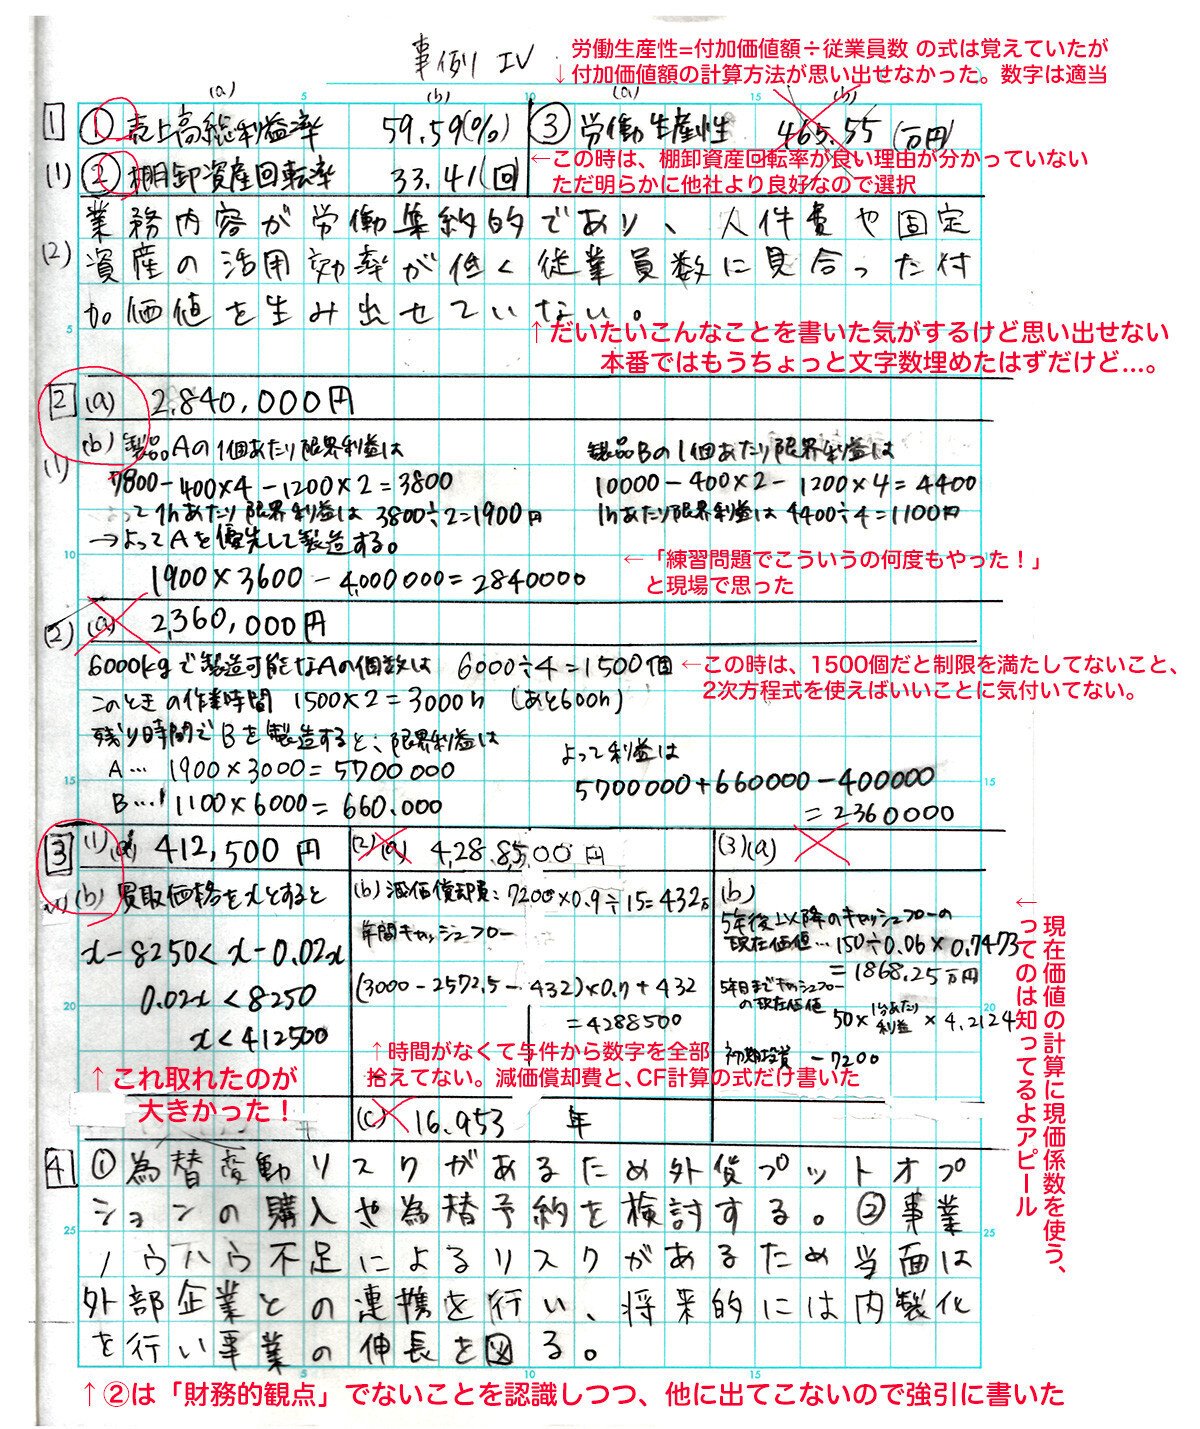 事例 IV
労働生産性=付加価値額÷従業員数 の式は覚えていたが
↓付加価値額の計算方法が思い出せなかった。数字は適当
(a) (b) (a) (b)
1 ① 売上高総利益率 59.59(%) ③ 労働生産性 465.55 (万円)
←この時は、棚卸資産回転率が良い理由が分かっていない
(1) ② 棚卸資産回転率 33.41(回)
ただ明らかに他社より良好なので選択
業務内容が労働集約的であり、人件費や固定
(2) 資産の活用効率が低く従業員数に見合った付
加価値を生み出せていない。
↑だいたいこんなことを書いた気がするけど思い出せない
本番ではもうちょっと文字数埋めたはずだけど…。
2 (a) 2,840,000円
(1) (b) 製品Aの1個あたり限界利益は
7800-400×4-1200×2=3800
よって1hあたり限界利益は 3800÷2=1900円
→よってAを優先して製造する。
1900×3600-4,000,000=2840000
製品Bの1個あたり限界利益は
10000-400×2-1200×4=4400
1hあたり限界利益は 4400÷4=1100円
←「練習問題でこういうの何度もやった！」
と現場で思った
(2) (a) 2,360,000円
6000kgで製造可能なAの個数は 6000÷4=1500個
←この時は、1500個だと制限を満たしてないこと、
2次方程式を使えばいいことに気付いてない。
このときの作業時間 1500×2=3000h (あと600h)
残り時間でBを製造すると、限界利益は
A… 1900×3000=5700000
B… 1100×6000=660.000
よって利益は
5700000+660000-400000
=2360000
3 (1) (a) 412,500円
(b) 買取価格をxとすると
x-8250<x-0.02x
0.02x<8250
x<412500
↑これ取れたのが
大きかった！
(2) (a) 4,28.8,500円
(b) 減価償却費:7200×0.9÷15=432万
年間キャッシュフロー
(3000-2572.5-432)×0.7+432
=4288500
↑時間がなくて与件から数字を全部
拾えてない。減価償却費と、CF計算の式だけ書いた
(c) 16.953 年
(3) (a)
(b)
5年後以降のキャッシュフローの
現在価値…150÷0.06×0.7473
=1868.25万円
5年目までキャッシュフロー
の現在価値
50×1分あたり利益×4.2124
初期投資 -7200
←現在価値の計算に現価係数を使う、
ってのは知ってるよアピール
4 ①為替変動リスクがあるため外貨プットオプ
ションの購入や為替予約を検討する。②事業
ノウハウ不足によるリスクがあるため当面は
外部企業との連携を行い、将来的には内製化
を行い事業の伸長を図る。
↑②は「財務的観点」でないことを認識しつつ、他に出てこないので強引に書いた
5 10 15
5
10
15 15
20 20
25 25
5 10 15